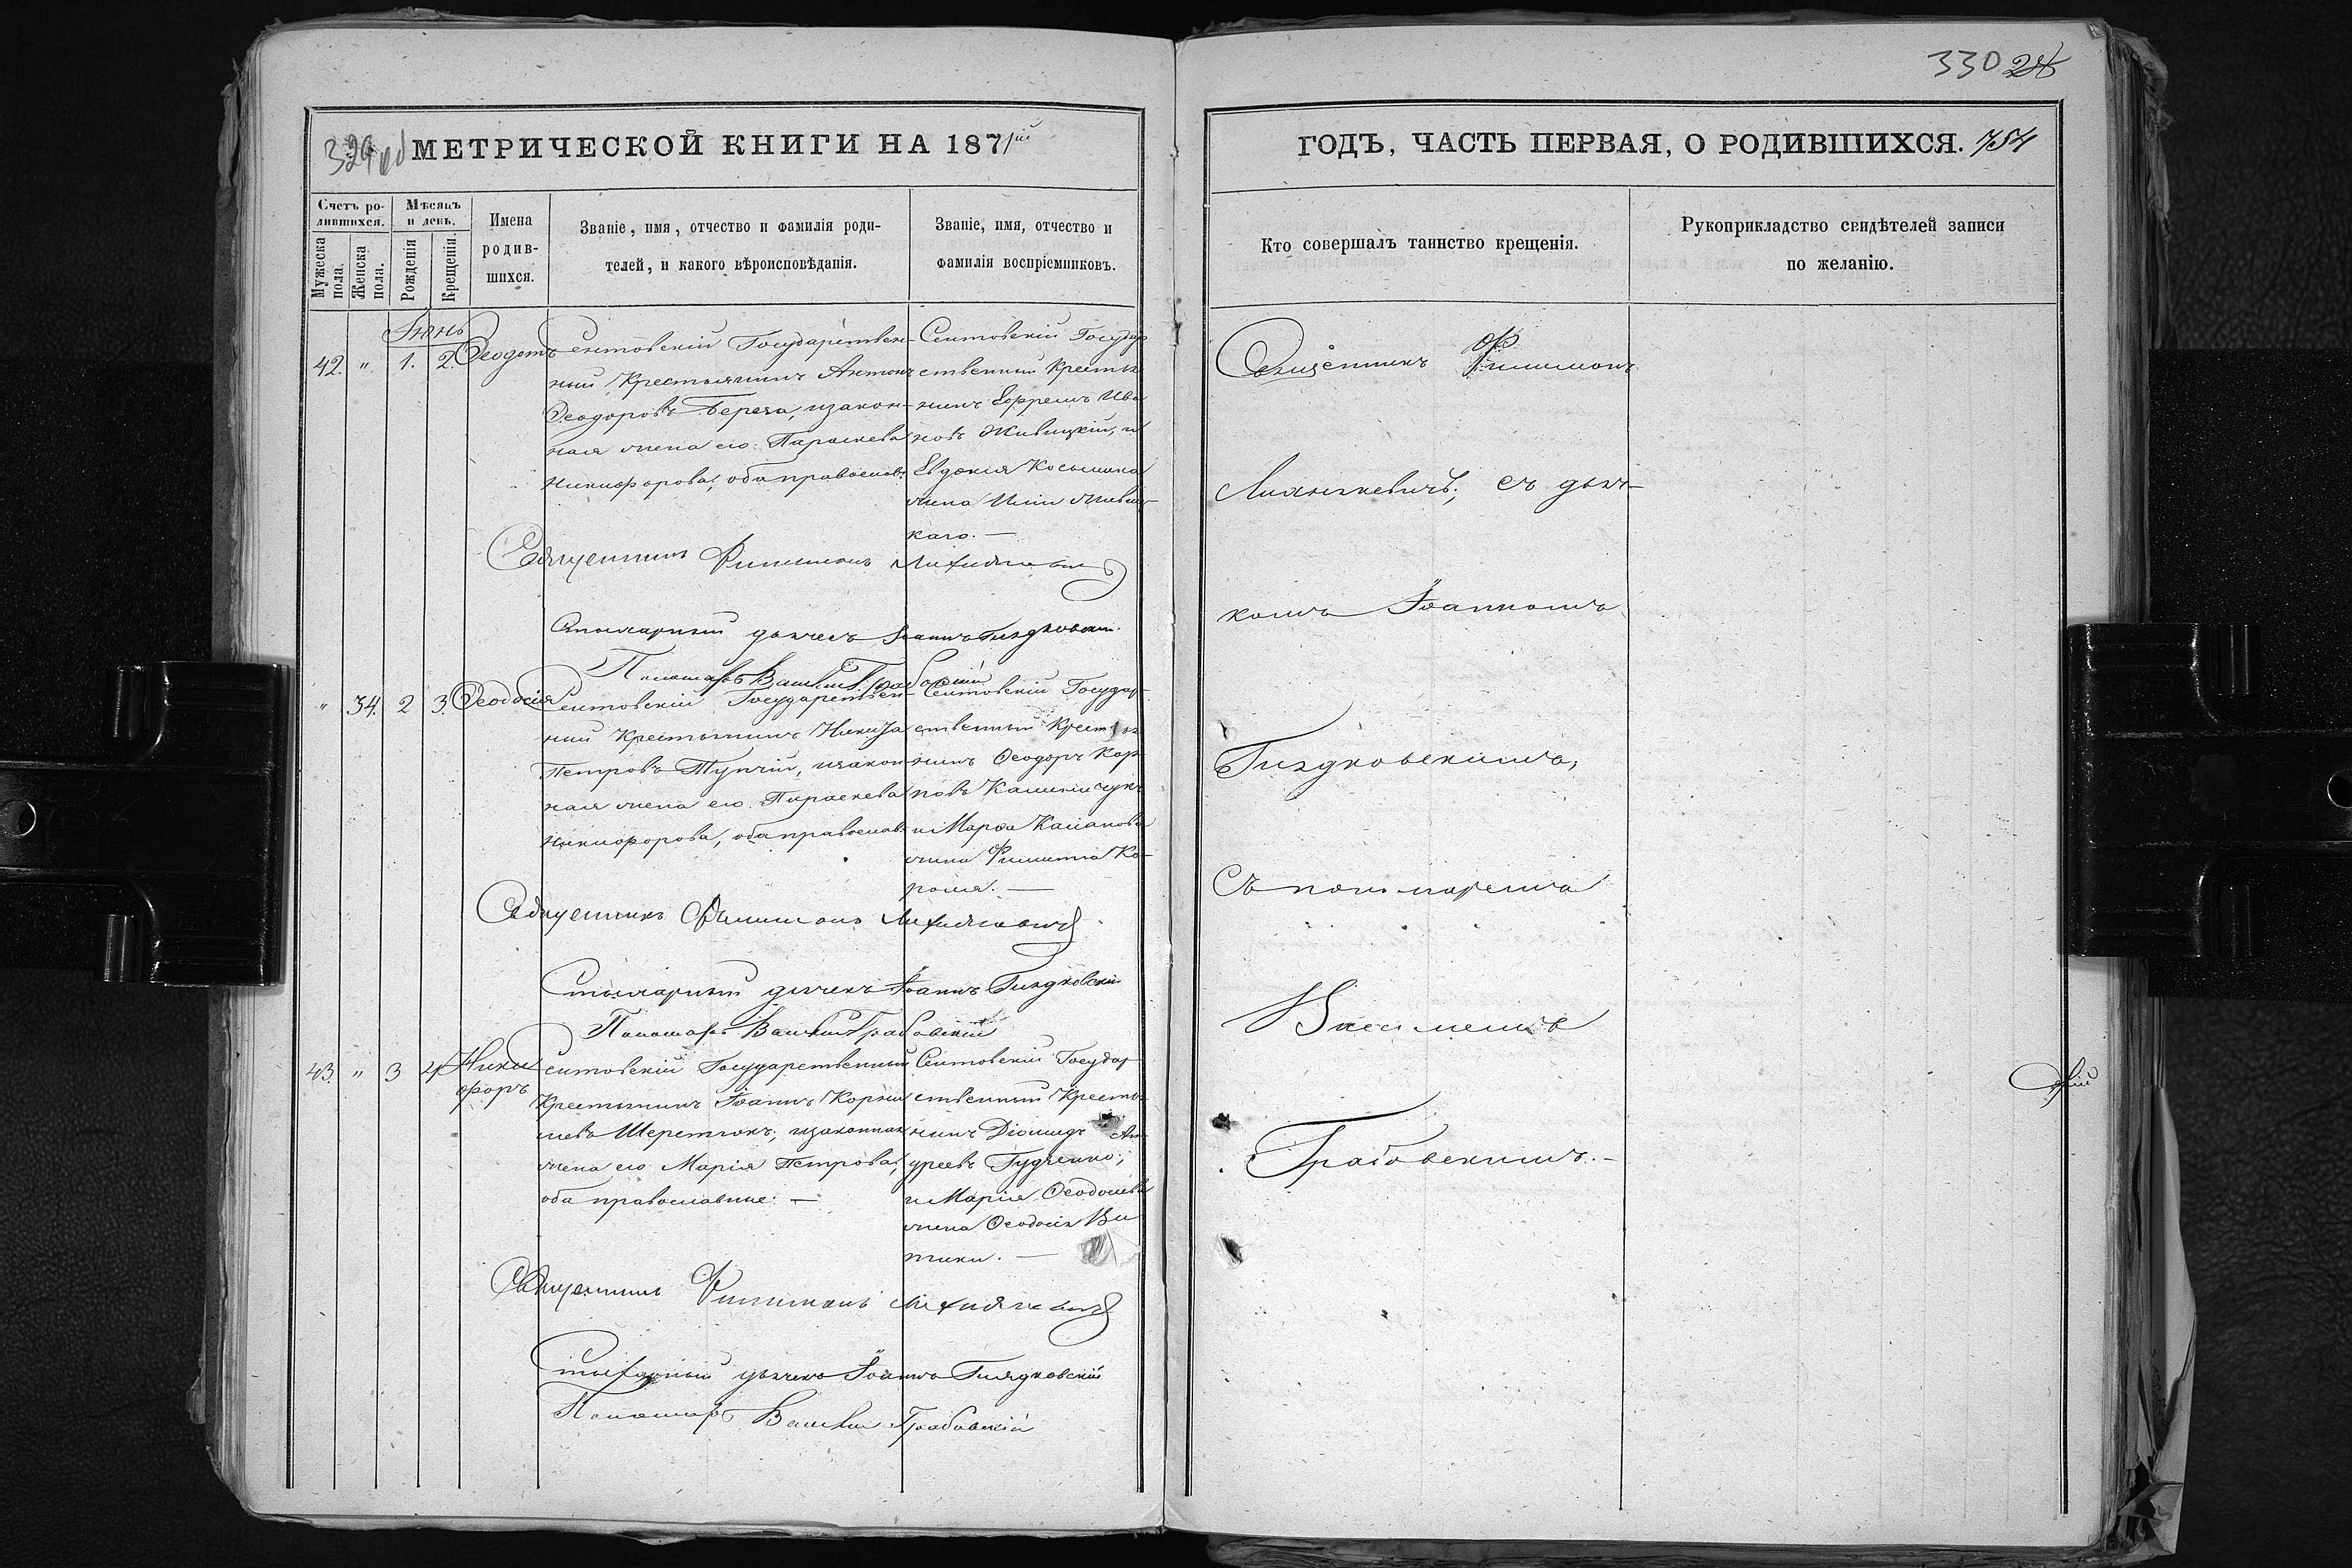 МЕТРИЧЕСКОЙ КНИГИ НА 1871й
Счетъ родившихся.
Мужеска пола.
Женска пола.
Мѣсяцъ и день.
Рожденія
Крещенія.
Имена родившихся.
Званіе, имя, отчество и фамилія роди-
телей, и какого вѣроисповѣданія.
Званіе, имя, отчество и
фамилія воспріемниковъ.
Іюнь
42. " 1. 2. Ѳеодотъ
Сентовскій Государствен-
ный Крестьянинъ Антонъ
Ѳеодоровъ Береза, изакон-
ная жена его Параскева
Никифорова, оба православ.
Сентовскій Государ
ственный Крестья
нинъ Ефремъ Ива
новъ Живицкій, и
Евдокія Косьмина
жена Живиц-
каго. —
Священникъ Филимонъ
Стихарный дьячекъ Іоаннъ Гнздковскій
Пономарь Василій Грабовскій
" 34. 2 3. Ѳеодосія
Сентовскій Государствен-
ный Крестьянинъ Никита
Петровъ Тупчій, изакон
ная жена его Параскева
Никифорова, оба православ.
Сентовскій Государ-
ственный Крестья
нинъ Ѳеодоръ Кар
повъ
и Марѳа Касіанова
жена Филиппа Ко-
роля. —
Священникъ Филимонъ
Стихарный дьячекъ Іоаннъ Гнздковскій
Пономарь Василій Грабовскій
43. " 3 4 Ники
форъ
Сентовскій Государственный
Крестьянинъ Іоаннъ Корни
ліевъ Шереметокъ; изаконная
жена его Марія Петрова,
оба православные. —
Сентовскій Государ
ственный Крестья
нинъ Діомидъ Ан-
дреевъ Гудченко;
и Марія Ѳеодосіева
жена Ѳеодосія Ви
тики. —
Священникъ Филимонъ
Стихарный дьячекъ Іоаннъ Гнздковскій
Пономарь Василій Грабовскій
330
ГОДЪ, ЧАСТЬ ПЕРВАЯ, О РОДИВШИХСЯ. 754
Кто совершалъ таинство крещенія.
Рукоприкладство свидѣтелей записи
по желанію.
Священникъ Филимонъ
съ дьяч-
комъ Іоанномъ
Гнздковскимъ,
съ пономаремъ
Василіемъ
Грабовскимъ. —